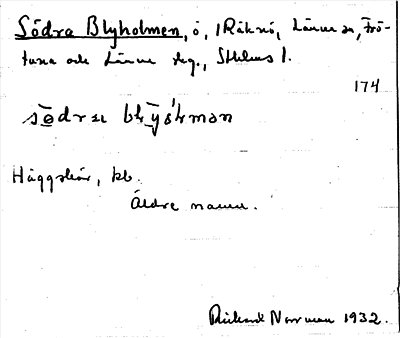 Södra Blyholmen, ö, i Räknö, Länna sn, Frö-
tuna och Länna skg., Sthlms l.
174
södra blyholman
Häggskär, kb.
Äldre namn.
Rickard Norrman 1932.